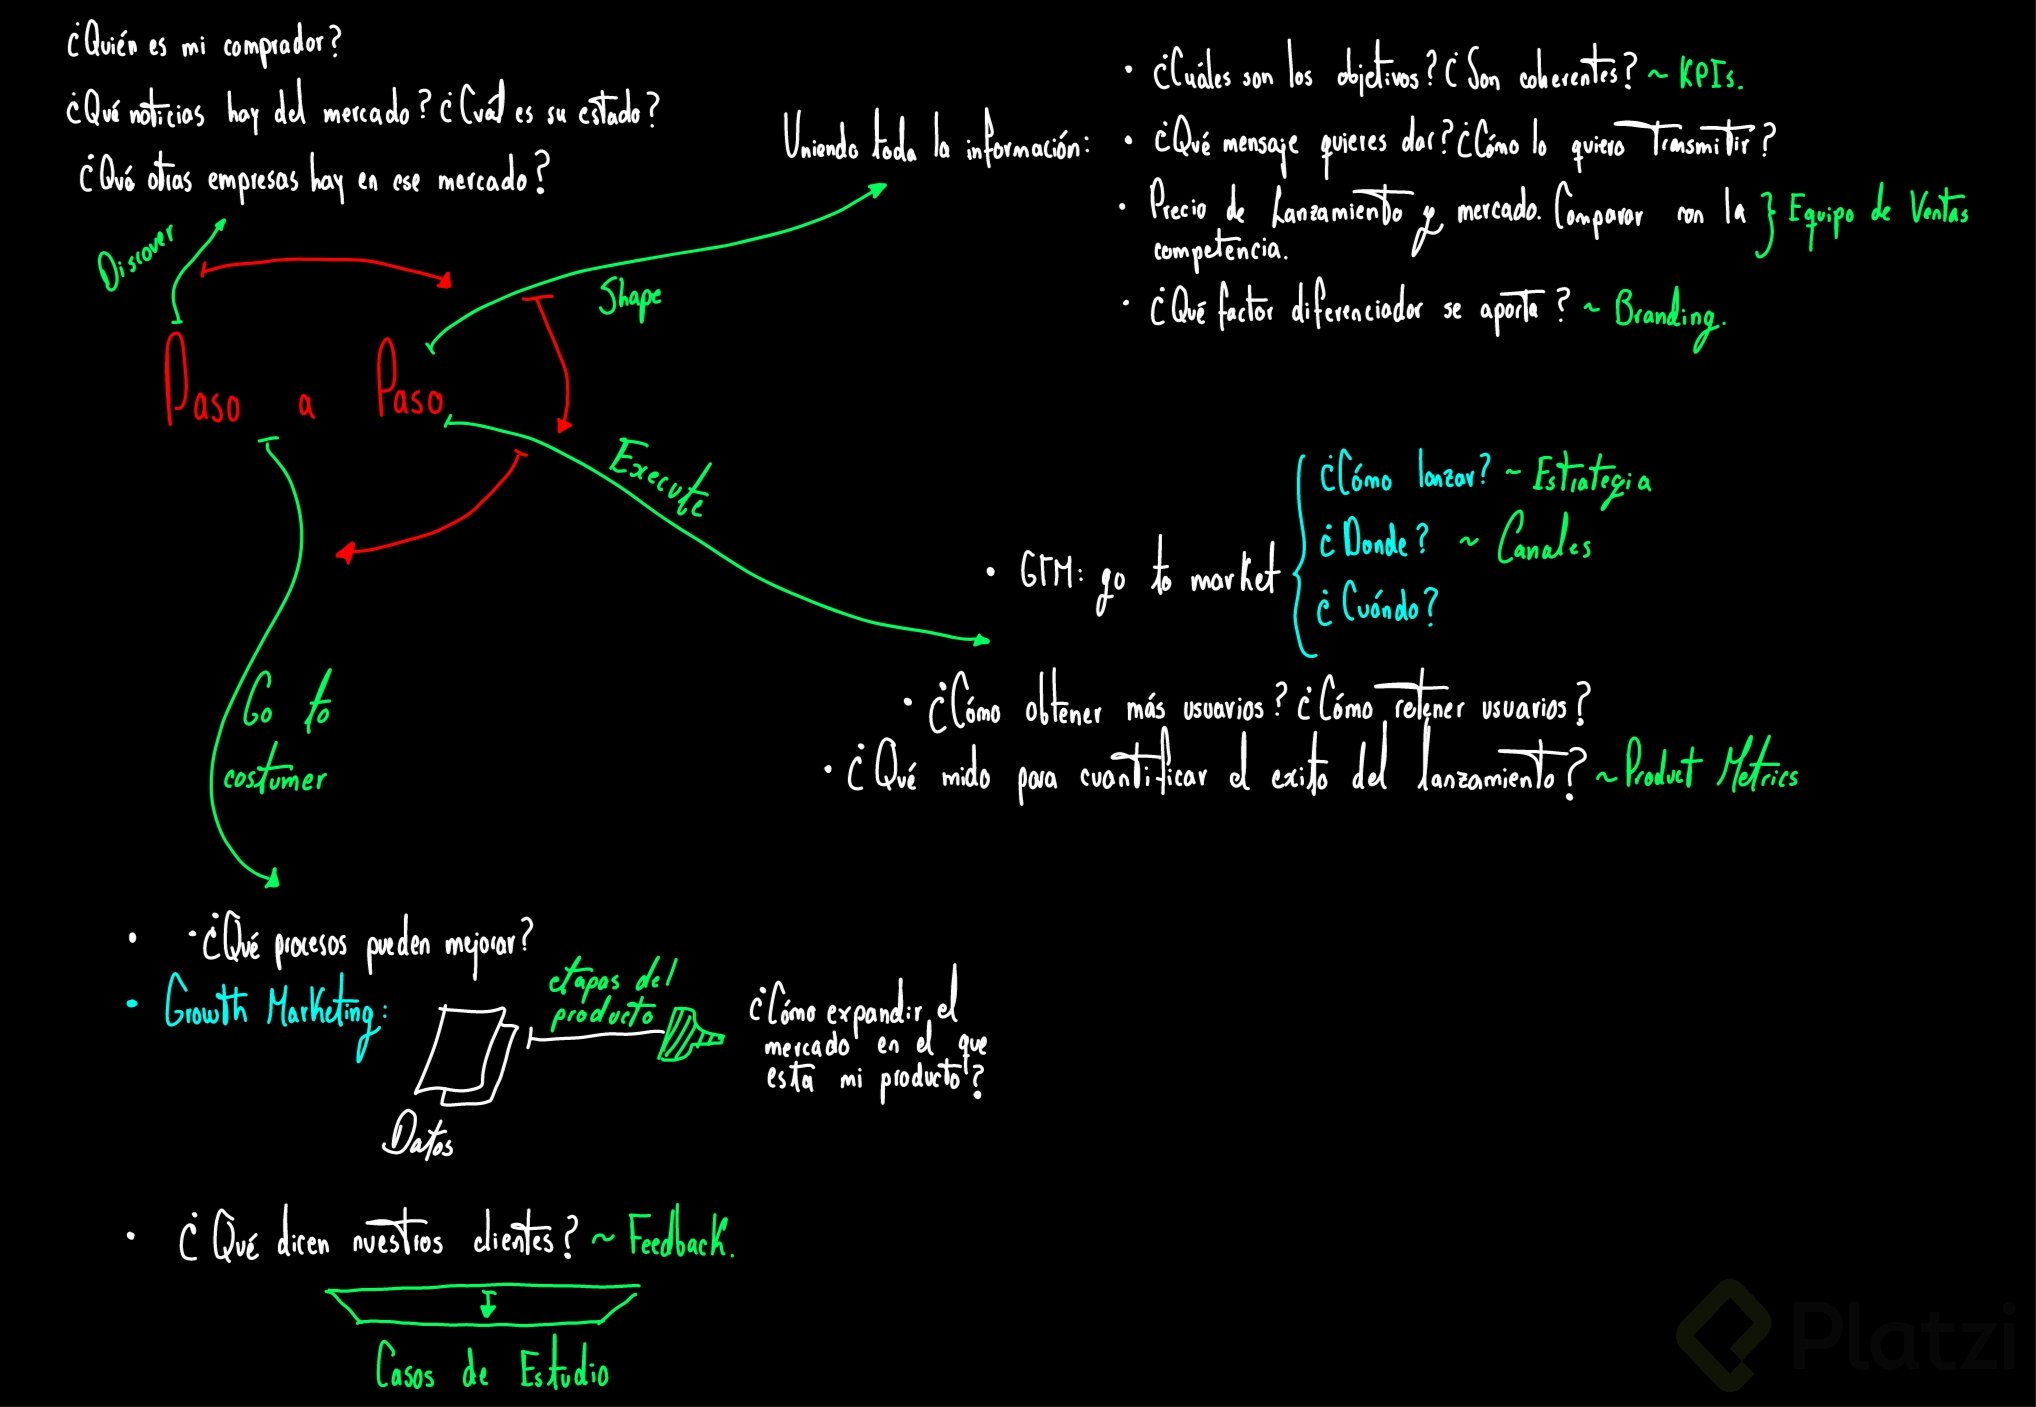 ¿Quién es mi comprador?
¿Qué noticias hay del mercado? ¿Cuál es su estado?
¿Qué otras empresas hay en ese mercado?
Discover
Paso a Paso
Shape
Uniendo toda la información:
• ¿Cuáles son los objetivos? ¿Son coherentes? ~ KPIs.
• ¿Qué mensaje quieres dar? ¿Cómo lo quiero Transmitir?
• Precio de Lanzamiento y mercado. Comparar con la } Equipo de Ventas
competencia.
• ¿Qué factor diferenciador se aporta? ~ Branding.
Execute
• GTM: go to market
¿Cómo lanzar? ~ Estrategia
¿Donde? ~ Canales
¿Cuándo?
• ¿Cómo obtener más usuarios? ¿Cómo retener usuarios?
• ¿Qué mido para cuantificar el exito del lanzamiento? ~ Product Metrics
Go to
costumer
• • ¿Qué procesos pueden mejorar?
• Growth Marketing:
Datos
etapas del
producto
¿Cómo expandir el
mercado en el que
esta mi producto?
• ¿Qué dicen nuestros clientes? ~ Feedback.
Casos de Estudio
Platzi